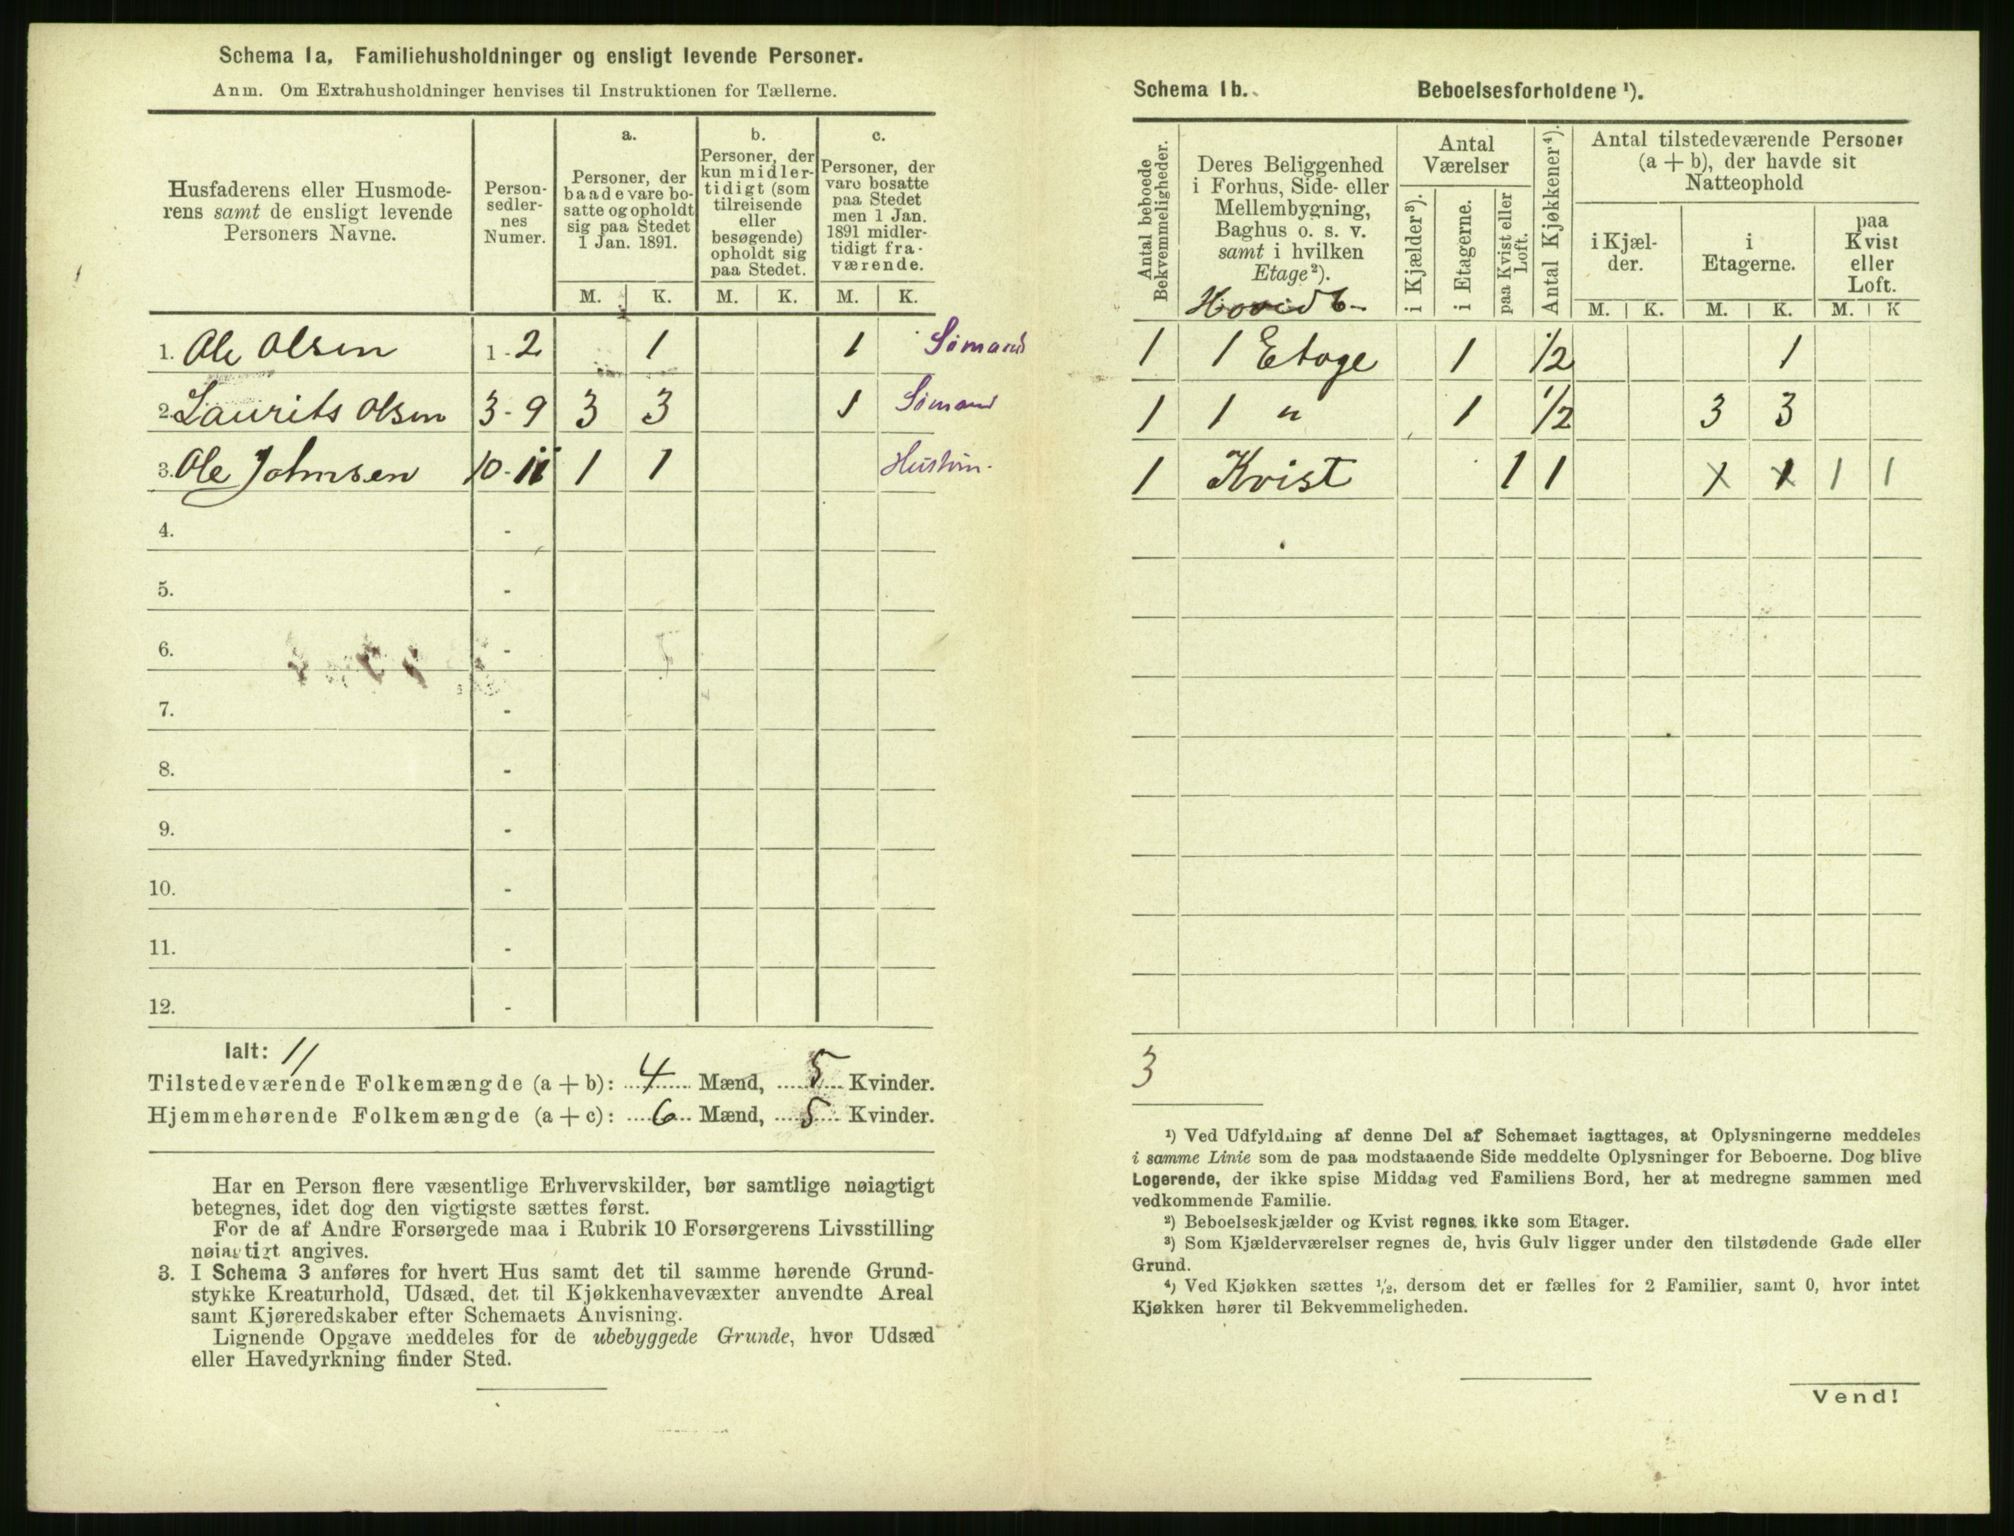 Schema 1a. Familiehusholdninger og ensligt levende Personer.
Anm. Om Extrahusholdninger henvises til Instruktionen for Tællerne.
Husfaderens eller Husmode-
rens samt de ensligt levende
Personers Navne.
Person-
sedler-
nes
Numer.
a.
Personer, der
baade vare bo-
satte og opholdt
sig paa Stedet
1 Jan. 1891.
b.
Personer, der
kun midler-
tidigt (som
tilreisende
eller
besøgende)
opholdt sig
paa Stedet.
c.
Personer, der
vare bosatte
paa Stedet
men 1 Jan.
1891 midler-
tidigt fra-
værende.
M. K. M. K. M. K.
1. Ole Olsen 1 - 2 1 1 Sömand
2. Laurits Olsen 3 - 9 3 3 1 Sömand
3. Ole Johnsen 10 - 11 1 1
4. -
5. -
6. -
7. -
8. -
9. -
10. -
11. -
12. -
Ialt: 11
Tilstedeværende Folkemængde (a + b): 4 Mænd, 5 Kvinder.
Hjemmehørende Folkemængde (a + c): 6 Mænd, 5 Kvinder.
Har en Person flere væsentlige Erhvervskilder, bør samtlige nøiagtigt
betegnes, idet dog den vigtigste sættes først.
For de af Andre Forsørgede maa i Rubrik 10 Forsørgerens Livsstilling
nøiagtigt angives.
3. I Schema 3 anføres for hvert Hus samt det til samme hørende Grund-
stykke Kreaturhold, Udsæd, det til Kjøkkenhavevæxter anvendte Areal
samt Kjøreredskaber efter Schemaets Anvisning.
Lignende Opgave meddeles for de ubebyggede Grunde, hvor Udsæd
eller Havedyrkning finder Sted.
Schema 1b. Beboelsesforholdene ¹).
Antal beboede
Bekvemmeligheder.
Deres Beliggenhed
i Forhus, Side- eller
Mellembygning,
Baghus o. s. v.
samt i hvilken
Etage²).
Antal
Værelser
i Kjælder³).
i Etagerne.
paa Kvist eller
Loft.
Antal Kjøkkener⁴).
Antal tilstedeværende Personer
(a + b), der havde sit
Natteophold
i Kjæl-
der.
i
Etagerne.
paa
Kvist
eller
Loft.
M. K. M. K. M. K
1 1 Etage 1 1/2 1
1 1 " 1 1/2 3 3
1 Kvist 1 1 1 1 1 1
3
¹) Ved Udfyldning af denne Del af Schemaet iagttages, at Oplysningerne meddeles
i samme Linie som de paa modstaaende Side meddelte Oplysninger for Beboerne. Dog blive
Logerende, der ikke spise Middag ved Familiens Bord, her at medregne sammen med
vedkommende Familie.
²) Beboelseskjælder og Kvist regnes ikke som Etager.
³) Som Kjælderværelser regnes de, hvis Gulv ligger under den tilstødende Gade eller
Grund.
⁴) Ved Kjøkken sættes ¹/₂, dersom det er fælles for 2 Familier, samt 0, hvor intet
Kjøkken hører til Bekvemmeligheden.
Vend!